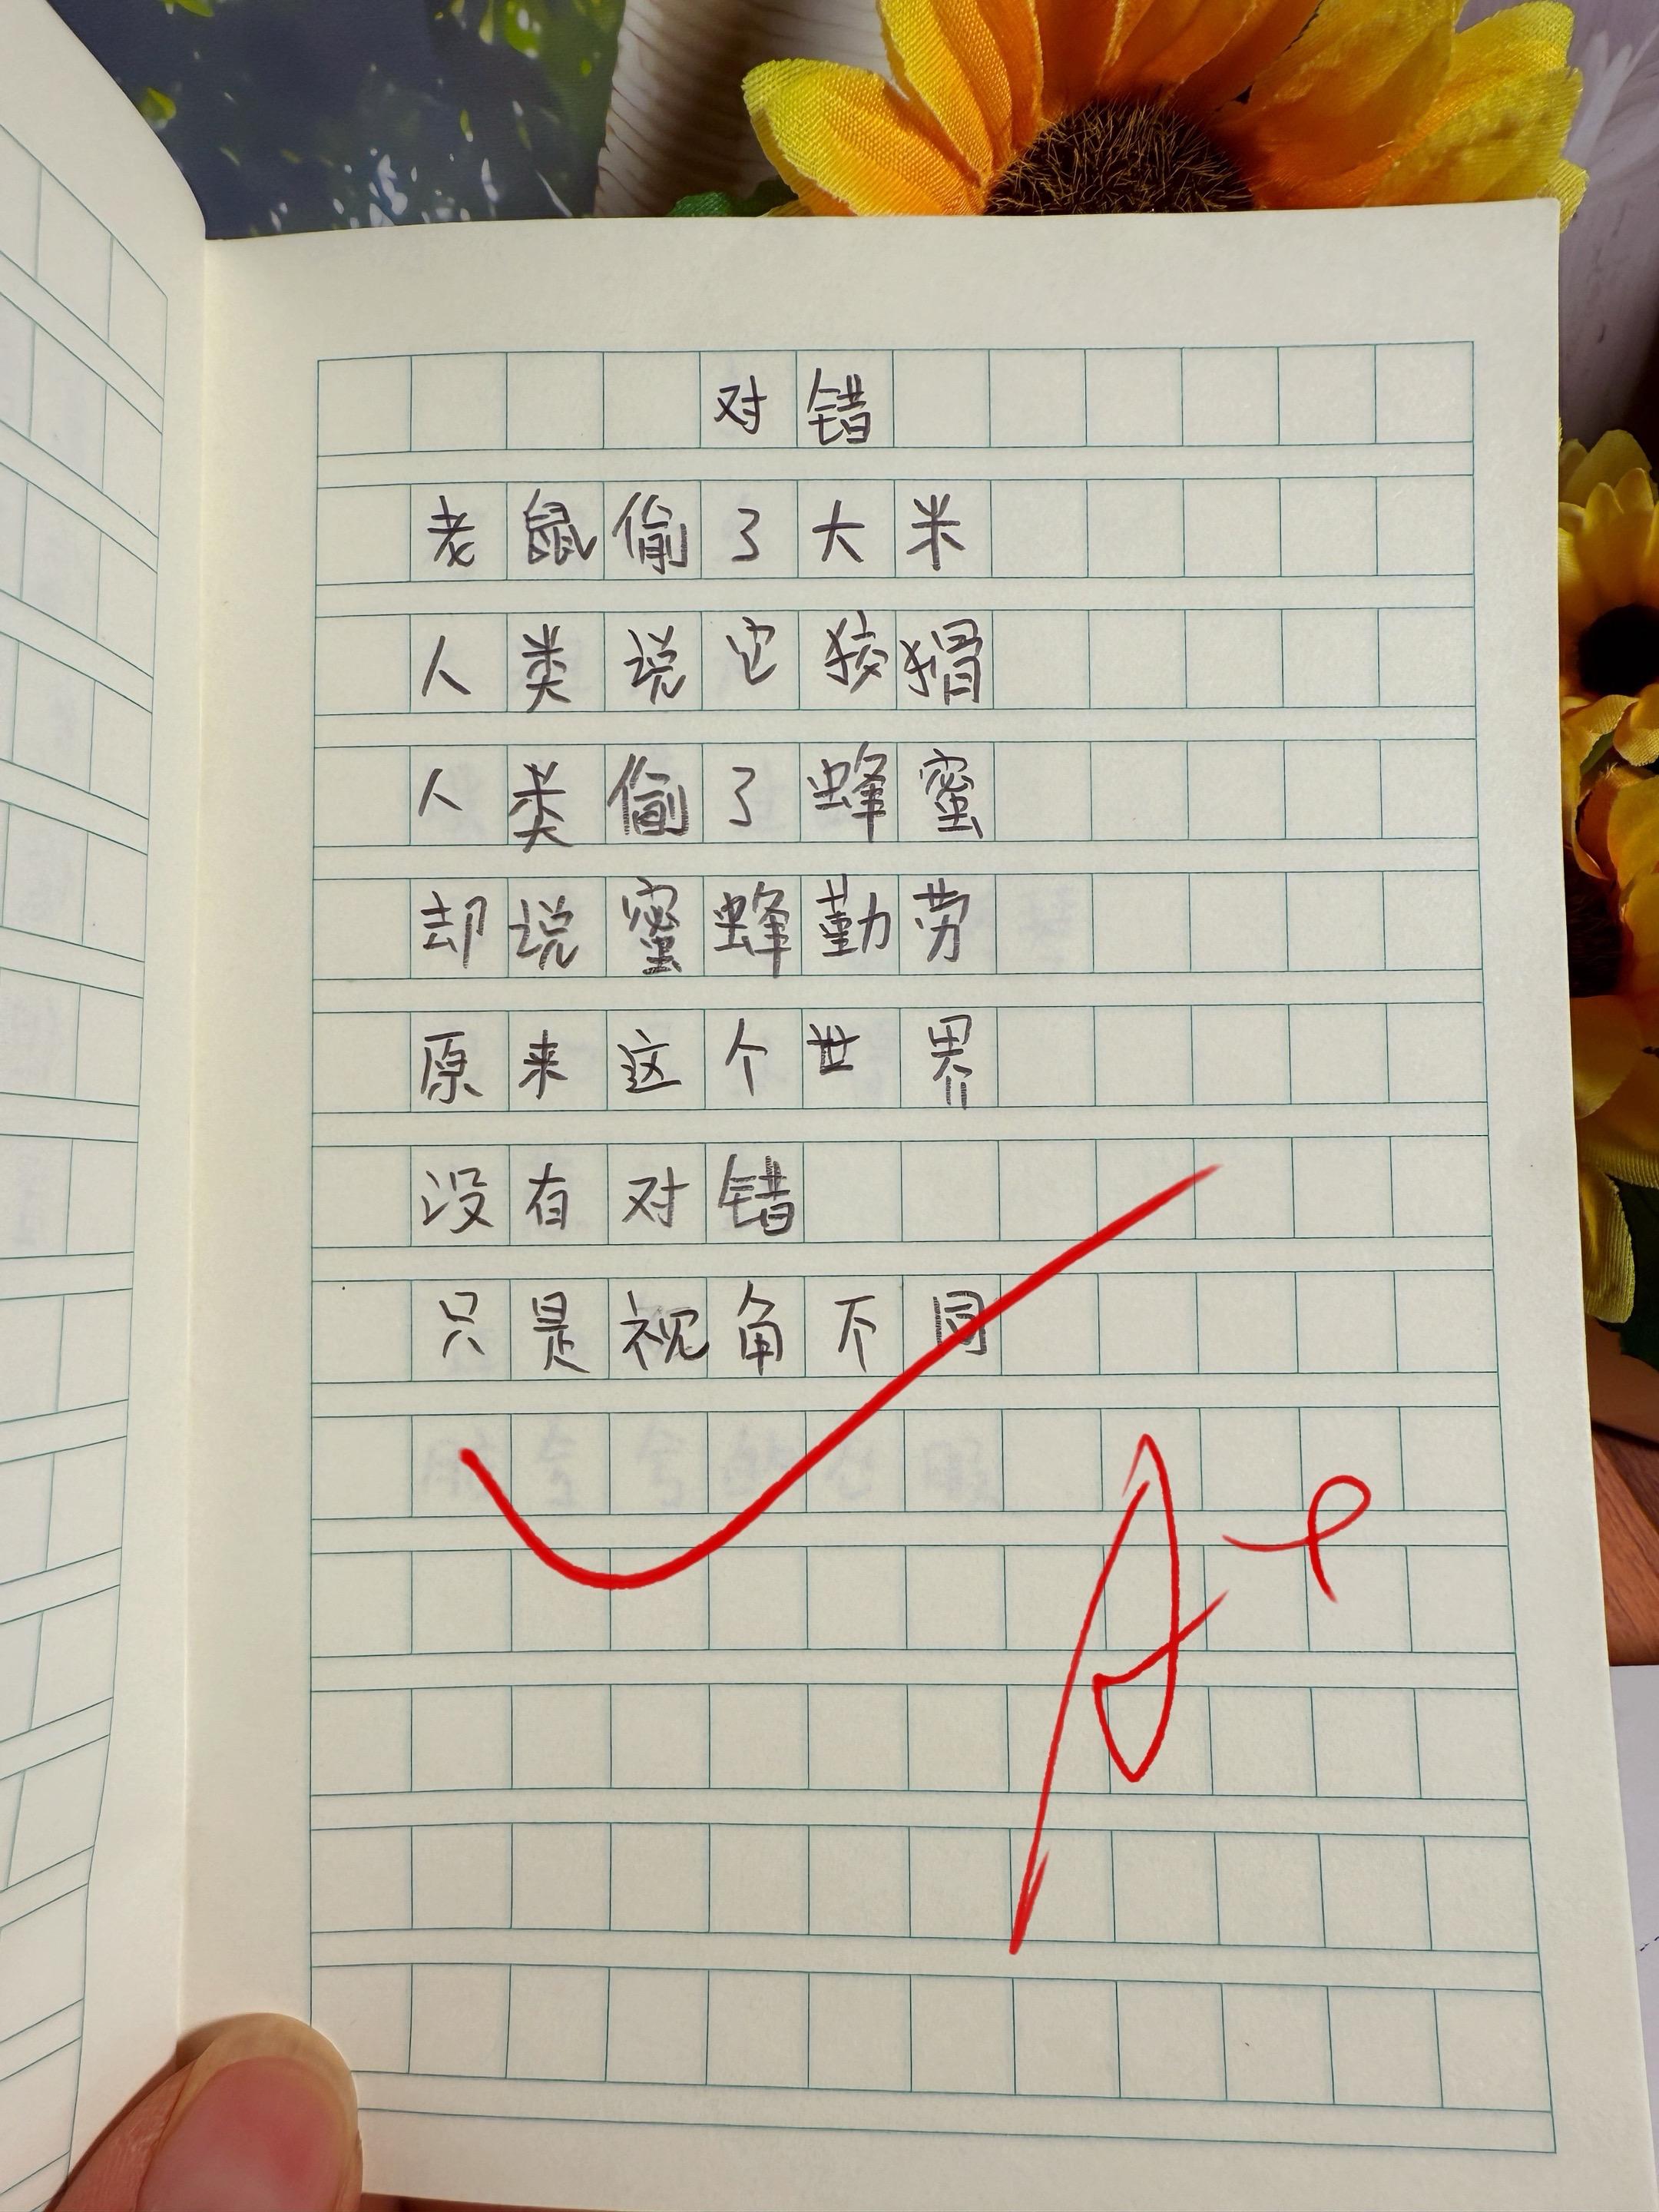 对错
老鼠偷了大米
人类说它狡猾
人类偷了蜂蜜
却说蜜蜂勤劳
原来这个世界
没有对错
只是视角不同
A+